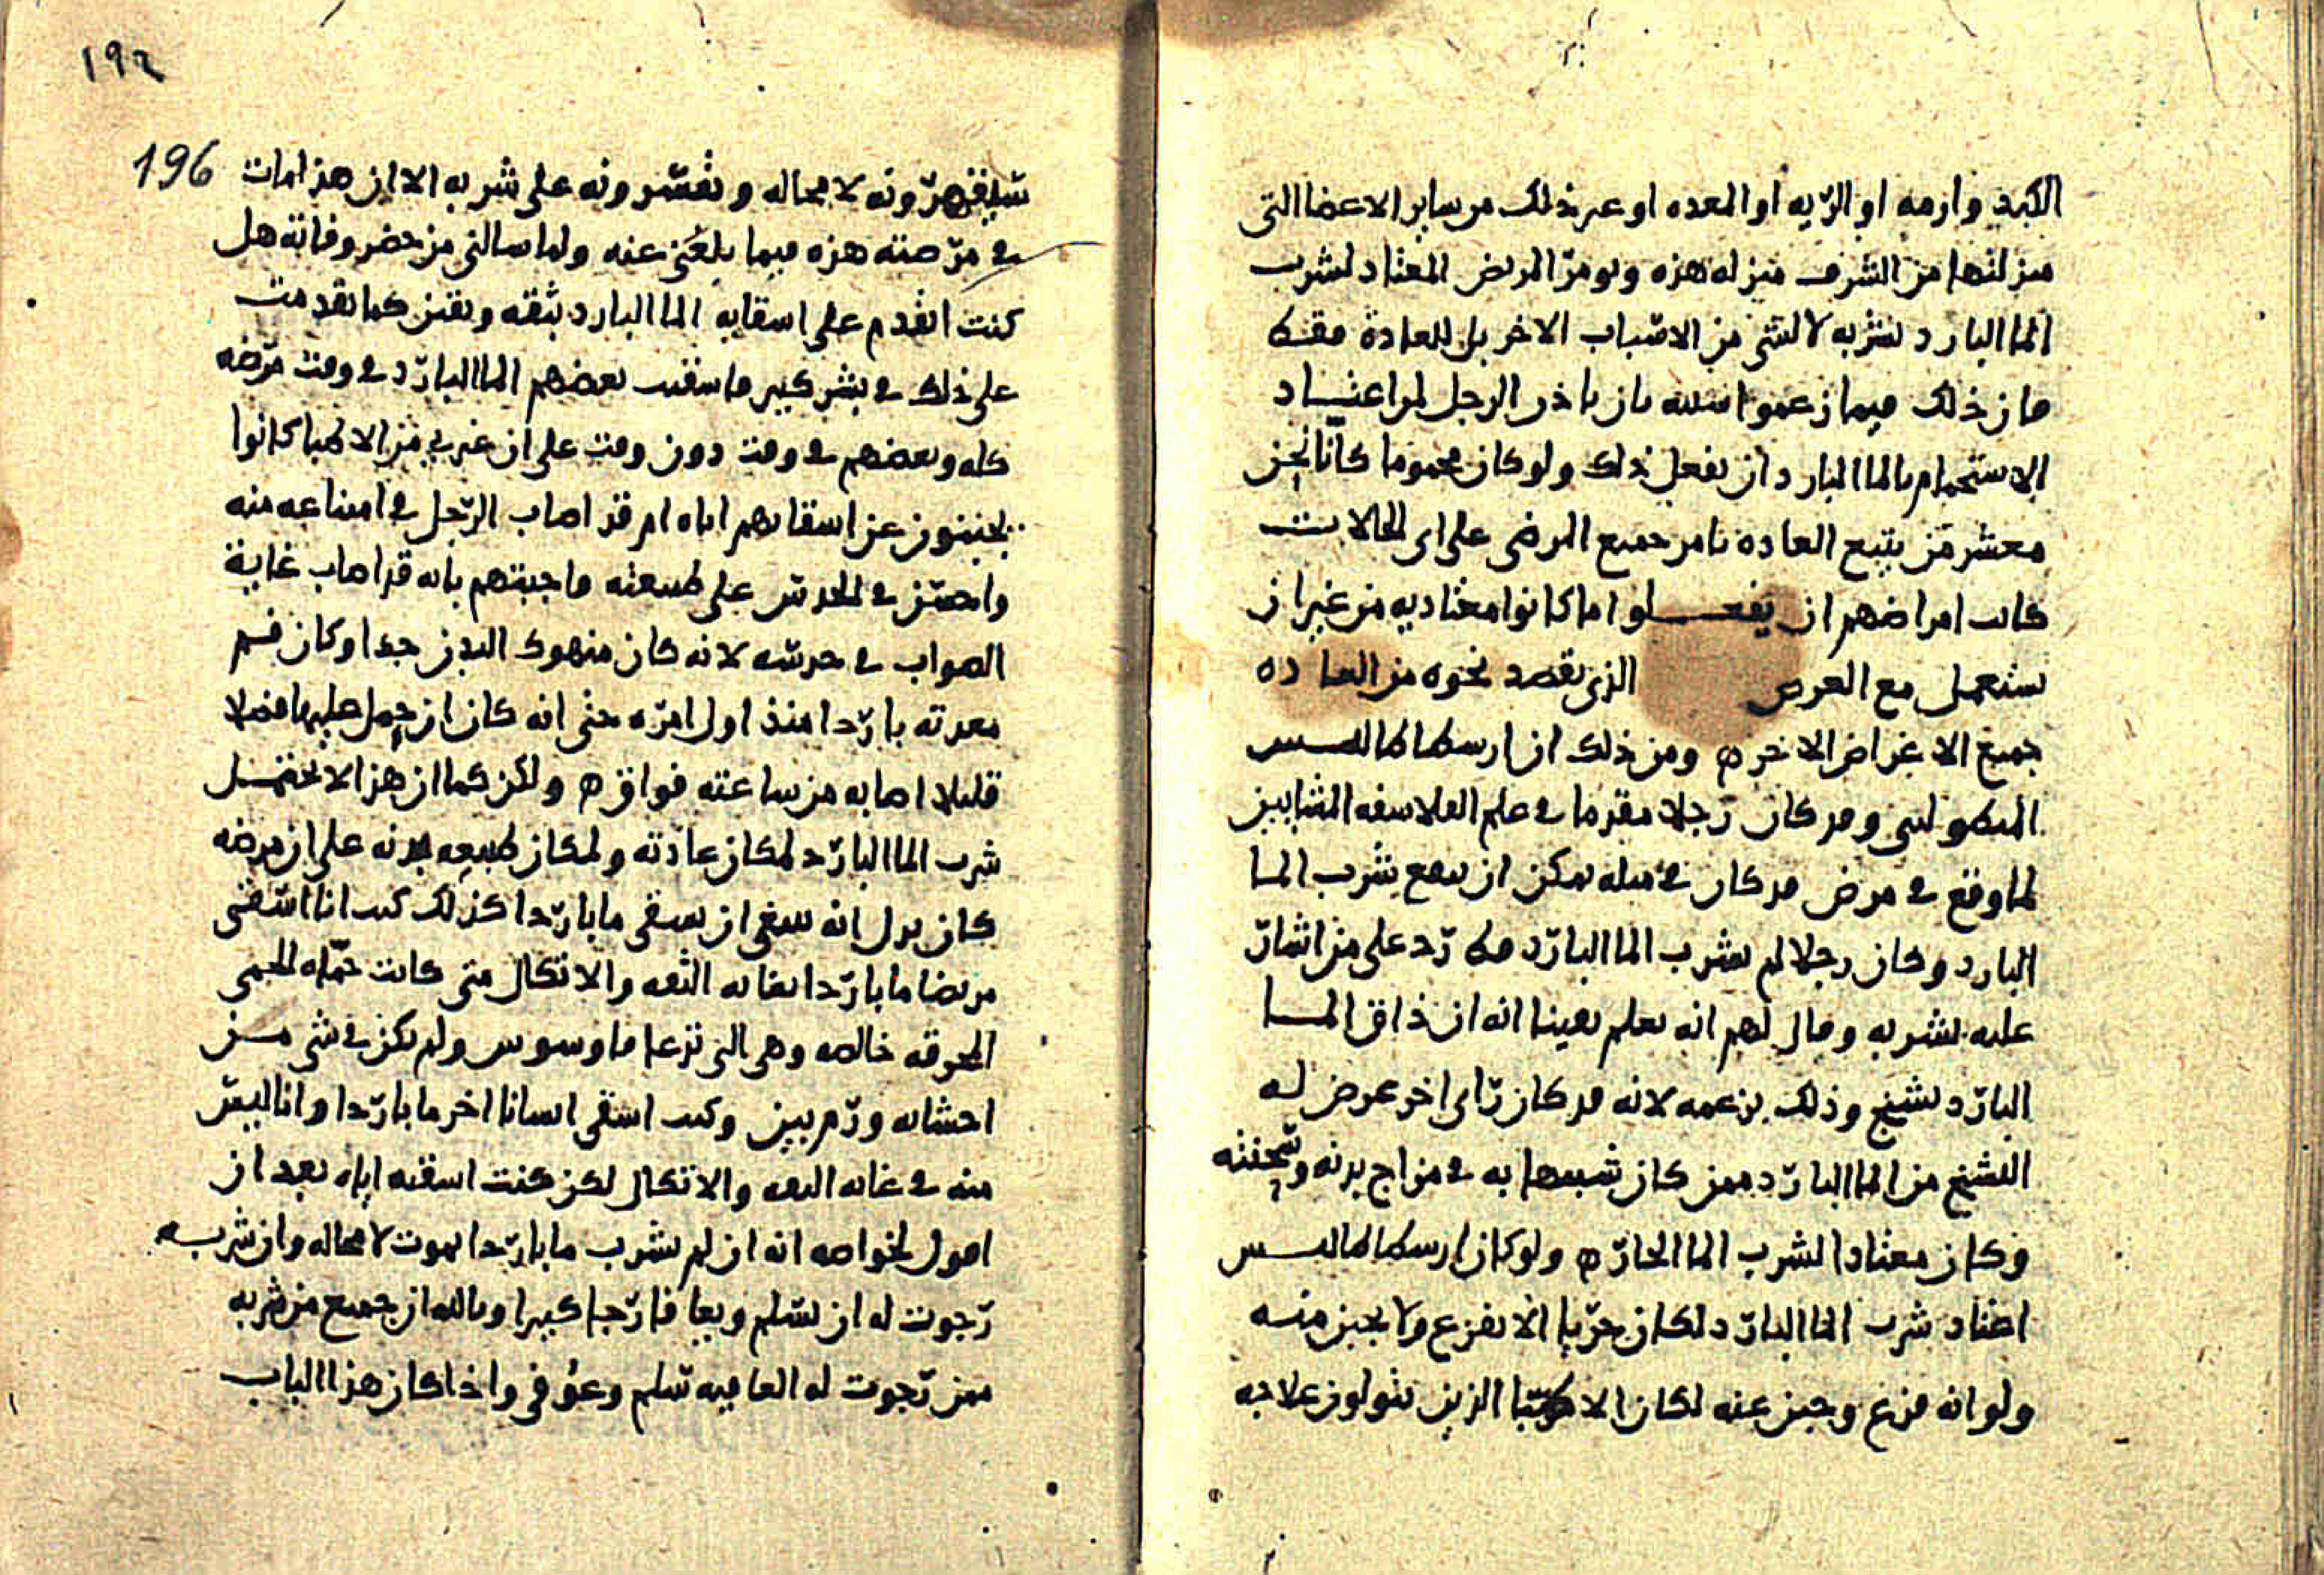 الكبد وارمه او الريه او المعده او غير ذلك من ساير الاعضا التى
منزلتها من الشرف منزله هذه ويومر المريض المعتاد لشرب
الما البارد بشربه لا لشى من الاسباب الاخر بل للعادة فقط
فان ذلك فيما زعموا اشبه بان ياذن الرجل لمن اعتاد
الاستحمام بالما البارد ان يفعل ذلك ولو كان محموما كانا نحن
معشر من يتبع العاده نامر جميع المرضى على اى الحالات
كانت امراضهم ان يفعلوا ما كانوا معتاديه من غير ان
نستعمل مع الغرض الذى نقصد نحوه من العاده
جميع الاغراض الاخر ه ومن ذلك ان ارسطاطاليس
وقد كان رجلا مقدما فى علم الفلاسفه المشايين
لما وقع فى مرض قد كان فى مثله يمكن ان ينفع بشرب الما
البارد وكان رجلا لم يشرب الما البارد قط رد على من اشار
عليه بشربه وقال لهم انه يعلم يقينا انه ان ذاق الما
البارد تشنج وذلك بزعمه لانه قد كان راى اخر عرض له
التشنج من الما البارد ممن كان شبيها به فى مزاج بدنه وسحنته
وكان معتادا لشرب الما الحار ه ولو كان ارسطاطاليس
اعتاد شرب الما البارد لكان حريا الا يفزع ولا يجبن منه
ولو انه فزع وجبن عنه لكان الاطبا الذين يتولون علاجه
١٩٢
196
سيقهرونه لا محاله ويقسرونه على شربه الا ان هذا مات
فى مرضته هذه فيما بلغنى عنه ولما سالنى من حضر وفاته هل
كنت اقدم على اسقايه الما البارد بثقه ويقين كما تقدمت
على ذلك فى بشر كثير فاسقيت بعضهم الما البارد فى وقت مرضه
كله وبعضهم فى وقت دون وقت على ان غيرى من الاطبا كانوا
يجبنون عن اسقايهم اياه ام قد اصاب الرجل فى امتناعه منه
واحسن فى الحدس على طبيعته فاجبتهم بانه قد اصاب غاية
الصواب فى حدسه لانه كان منهوك البدن جدا وكان فم
معدته باردا منذ اول امره حتى انه كان ان حمل عليها فضلا
قليلا اصابه من ساعته فواق ه ولكن كما ان هذا لا يحتمل
شرب الما البارد لمكان عادته ولمكان طبيعه بدنه على ان مرضه
كان يدل انه ينبغى ان يسقى ما باردا كذلك كنت انا اسقى
مريضا ما باردا بغايه الثقه والاتكال متى كانت حماه الحمى
المحرقه خالصه وهى التى تدعا قاوسوس ولم يكن فى شى من
احشايه ورم بين وكنت اسقى انسانا اخر ما باردا وانا ليس
منه فى غايه الثقه والاتكال لكن كنت اسقيه اياه بعد ان
اقول لخواصه انه ان لم يشرب ما باردا يموت لا محاله وان شربه
رجوت له ان يسلم ويعافا رجا كبيرا وبالله ان جميع من شربه
ممن رجوت له العافيه سلم وعوفى واذا كان هذا الباب